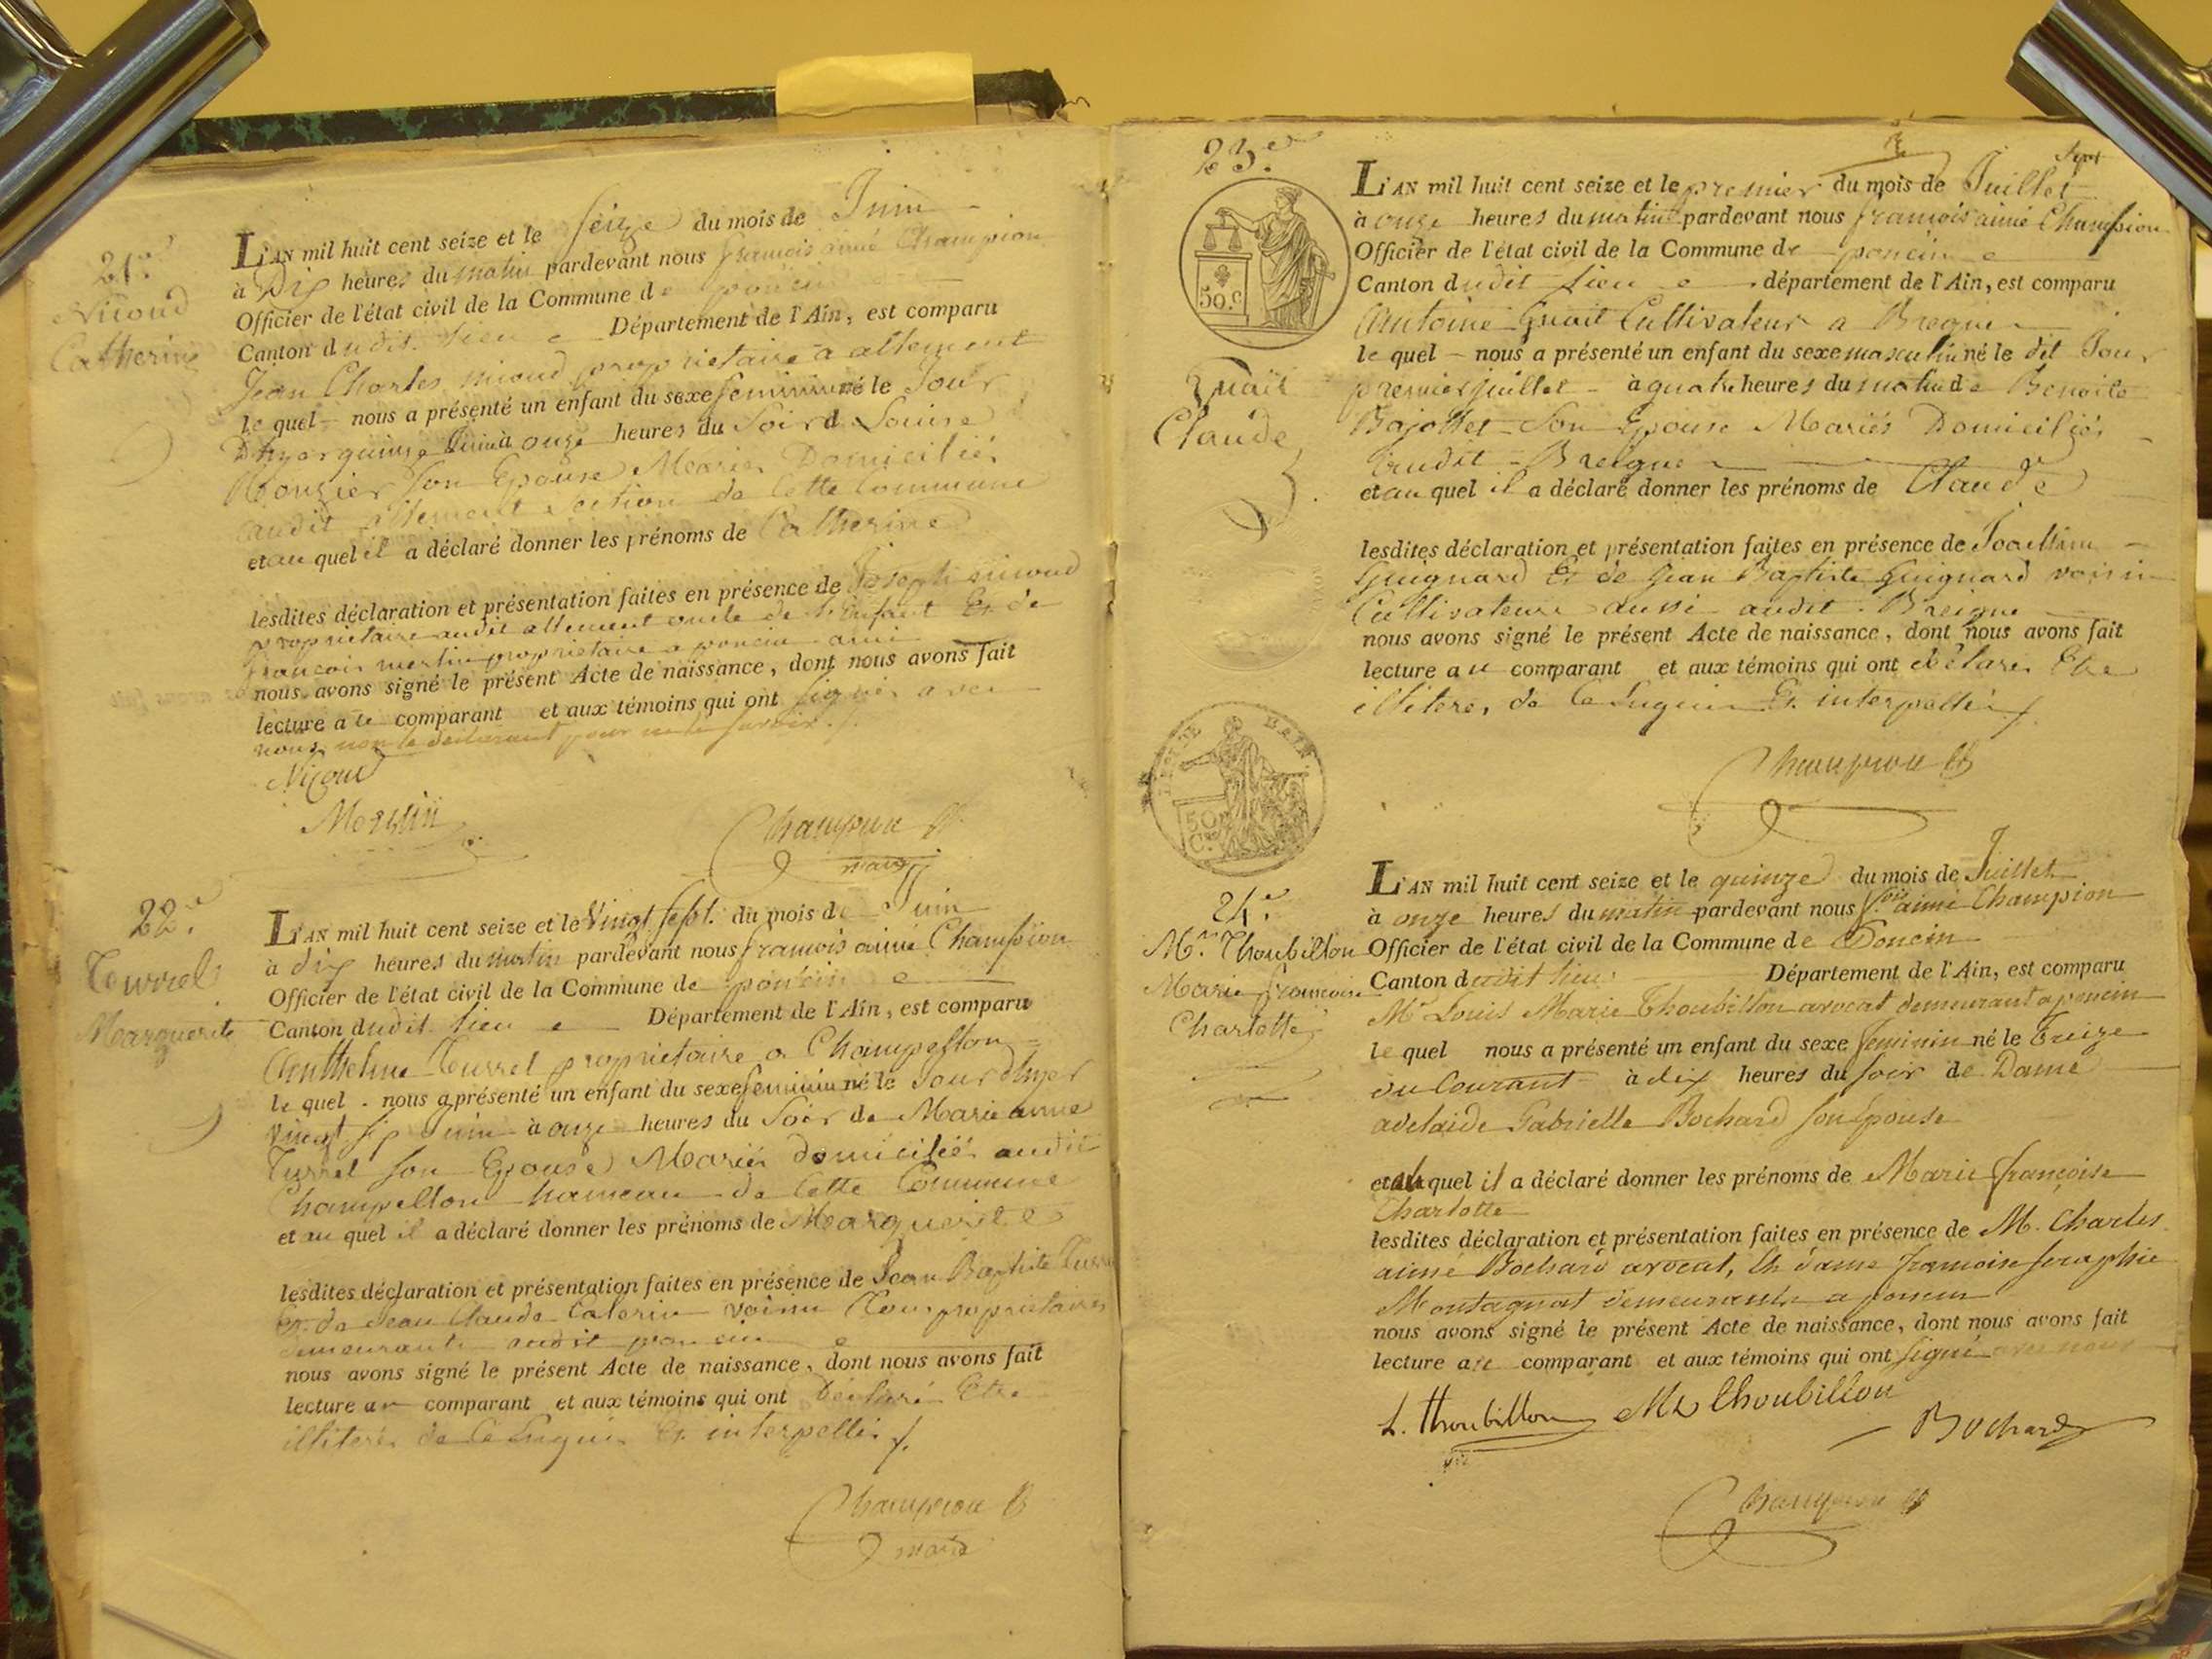 21.e
Nicoud
Catherine
L'AN mil huit cent seize et le seize du mois de Juin
à Dix heures du matin pardevant nous françois aimé Champion
Officier de l'état civil de la Commune de poncin
Canton dudit lieu Département de l'Ain, est comparu
Jean Charles nicoud propriétaire a allement
le quel nous a présenté un enfant du sexe feminin né le Jour
Dhyer quinze Juin à onze heures du Soir de Louise
Son Epouse Mariés Domiciliés
audit allement section de Cette Commune
et au quel il a déclaré donner les prénoms de Catherine
lesdites déclaration et présentation faites en présence de Joseph nicoud
propriétaire audit allement oncle de l'Enfant Et de
francois propriétaire a poncin ami
nous avons signé le présent Acte de naissance, dont nous avons fait
lecture au comparant et aux témoins qui ont signés avec
nous non le déclarant pour ne le savoir
Nicoud
Champion
maire
22.e
Marguerite
L'AN mil huit cent seize et le Vingt sept du mois de Juin
à dix heures du matin pardevant nous francois aimé Champion
Officier de l'état civil de la Commune de poncin
Canton dudit lieu Département de l'Ain, est comparu
Anthelme Turrel propriétaire a Champellon
le quel nous a présenté un enfant du sexe feminin né le Jour dhyer
Vingt six Juin à onze heures du Soir de Marie anne
Turrel son Epouse Mariés domiciliés audit
Champellon hameau de Cette Commune
et au quel il a déclaré donner les prénoms de Marguerite
lesdites déclaration et présentation faites en présence de Jean Baptiste
Et de Jean Claude voisin tous propriétaires
demeurants audit poncin
nous avons signé le présent Acte de naissance, dont nous avons fait
lecture au comparant et aux témoins qui ont Déclaré Etre
illiteré de Ce Enquis Et interpellés
Champion
maire
23.e
50.c
Quait
Claude
L'AN mil huit cent seize et le premier du mois de Juillet
à onze heures du matin pardevant nous francois aimé Champion
Officier de l'état civil de la Commune de poncin
Canton dudit lieu département de l'Ain, est comparu
Antoine Quait Cultivateur a Breigne
le quel nous a présenté un enfant du sexe masculin né le dit Jour
premier juillet à quatre heures du matin de Benoite
Bajollet Son Epouse Mariés Domiciliés
audit Breigne
et au quel il a déclaré donner les prénoms de Claude
lesdites déclaration et présentation faites en présence de
Guignard Et de Jean Baptiste Guignard voisin
Cultivateurs aussi audit Breigne
nous avons signé le présent Acte de naissance, dont nous avons fait
lecture au comparant et aux témoins qui ont déclaré Etre
illiteré, de Ce Enquis Et interpellés
Champion
50
C.
24.e
M.r Thoubillon
Marie françoise
Charlotte
L'AN mil huit cent seize et le quinze du mois de Juillet
à onze heures du matin pardevant nous f.cois aimé Champion
Officier de l'état civil de la Commune de Poncin
Canton dudit lieu Département de l'Ain, est comparu
M.r Louis Marie Thoubillon avocat demeurant a poncin
le quel nous a présenté un enfant du sexe feminin né le Treize
du Courant à dix heures du soir de Dame
adelaide Gabrielle Bochard son Epouse
et au quel il a déclaré donner les prénoms de Marie françoise
Charlotte
lesdites déclaration et présentation faites en présence de M. Charles
aimé Bochard avocat, Et dame francoise seraphie
Montagnat demeurants a poncin
nous avons signé le présent Acte de naissance, dont nous avons fait
lecture au comparant et aux témoins qui ont signé avec nous
L. Thoubillon Thoubillon
Bochard
Champion